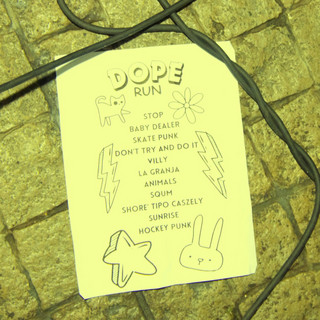 DOPE
RUN
STOP
BABY DEALER
SKATE PUNK
DON'T TRY AND DO IT
VILLY
LA GRANJA
ANIMALS
SQUM
SHORE' TIPO CASZELY
SUNRISE
HOCKEY PUNK